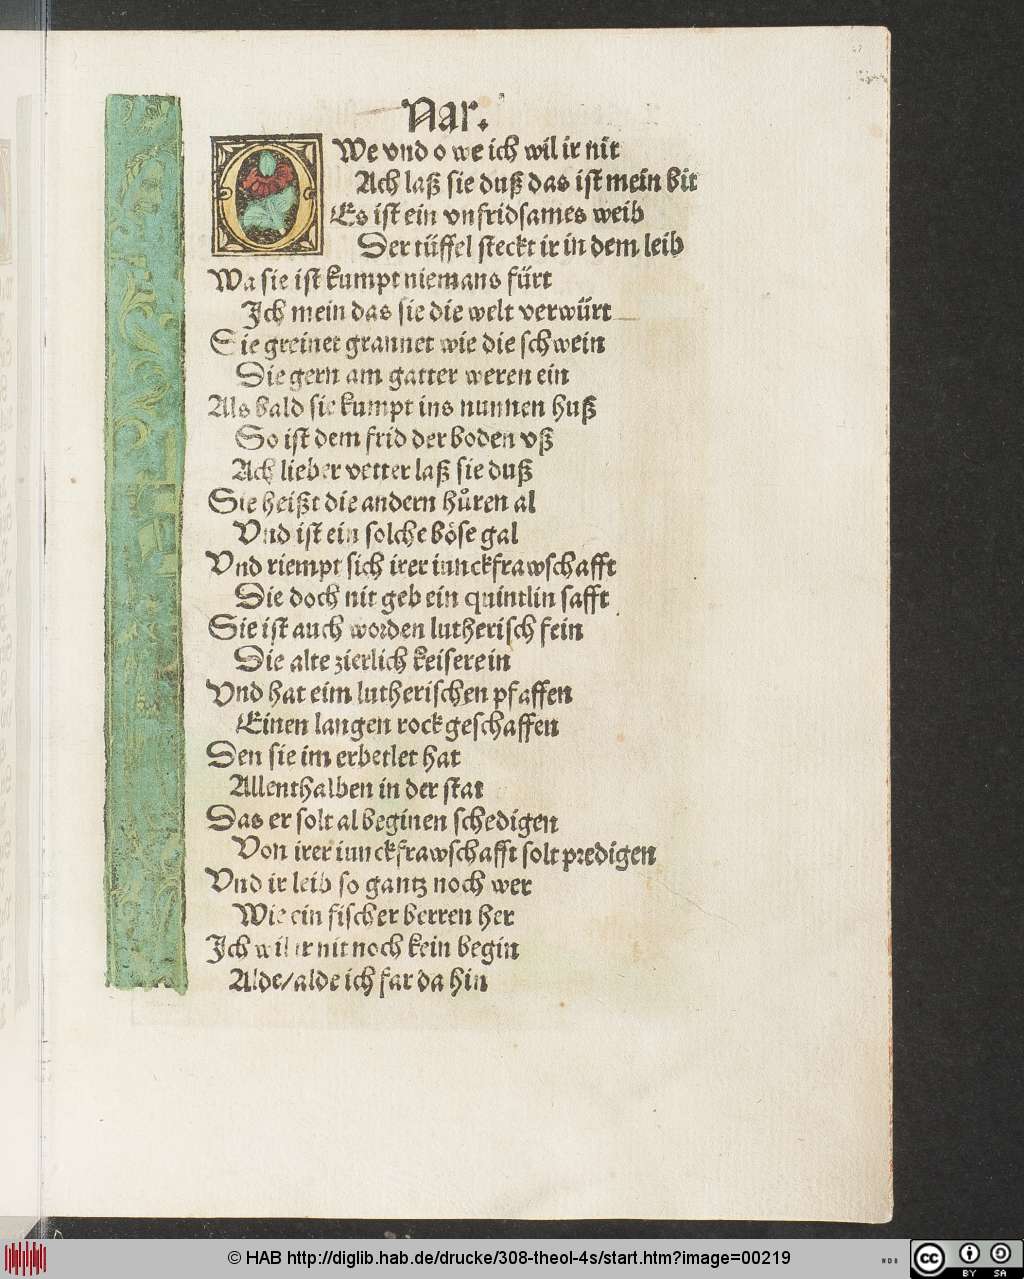 Nar.
OWe vnd o we ich wil ir nit
Ach laß sie duß das ist mein bit
Es ist ein vnfridsames weib
Der tüffel steckt ir in dem leib
Wa sie ist kumpt niemans fürt
Ich mein das sie die welt verwürt
Sie greinet grannet wie die schwein
Die gern am gatter weren ein
Als bald sie kumpt ins nunnen huß
So ist dem frid der boden vß
Ach lieber vetter laß sie duß
Sie heißt die andern hůren al
Vnd ist ein solche böse gal
Vnd riempt sich irer iunckfrawschafft
Die doch nit geb ein quintlin safft
Sie ist auch worden lutherisch fein
Die alte zierlich keiserein
Vnd hat eim lutherischen pfaffen
Einen langen rock geschaffen
Den sie im erbetlet hat
Allenthalben in der stat
Das er solt al beginen schedigen
Von irer iunckfrawschafft solt predigen
Vnd ir leib so gantz noch wer
Wie ein fischer berren her
Ich wil ir nit noch kein begin
Alde/alde ich far da hin
© HAB http://diglib.hab.de/drucke/308-theol-4s/start.htm?image=00219
WDB
cc
BY SA